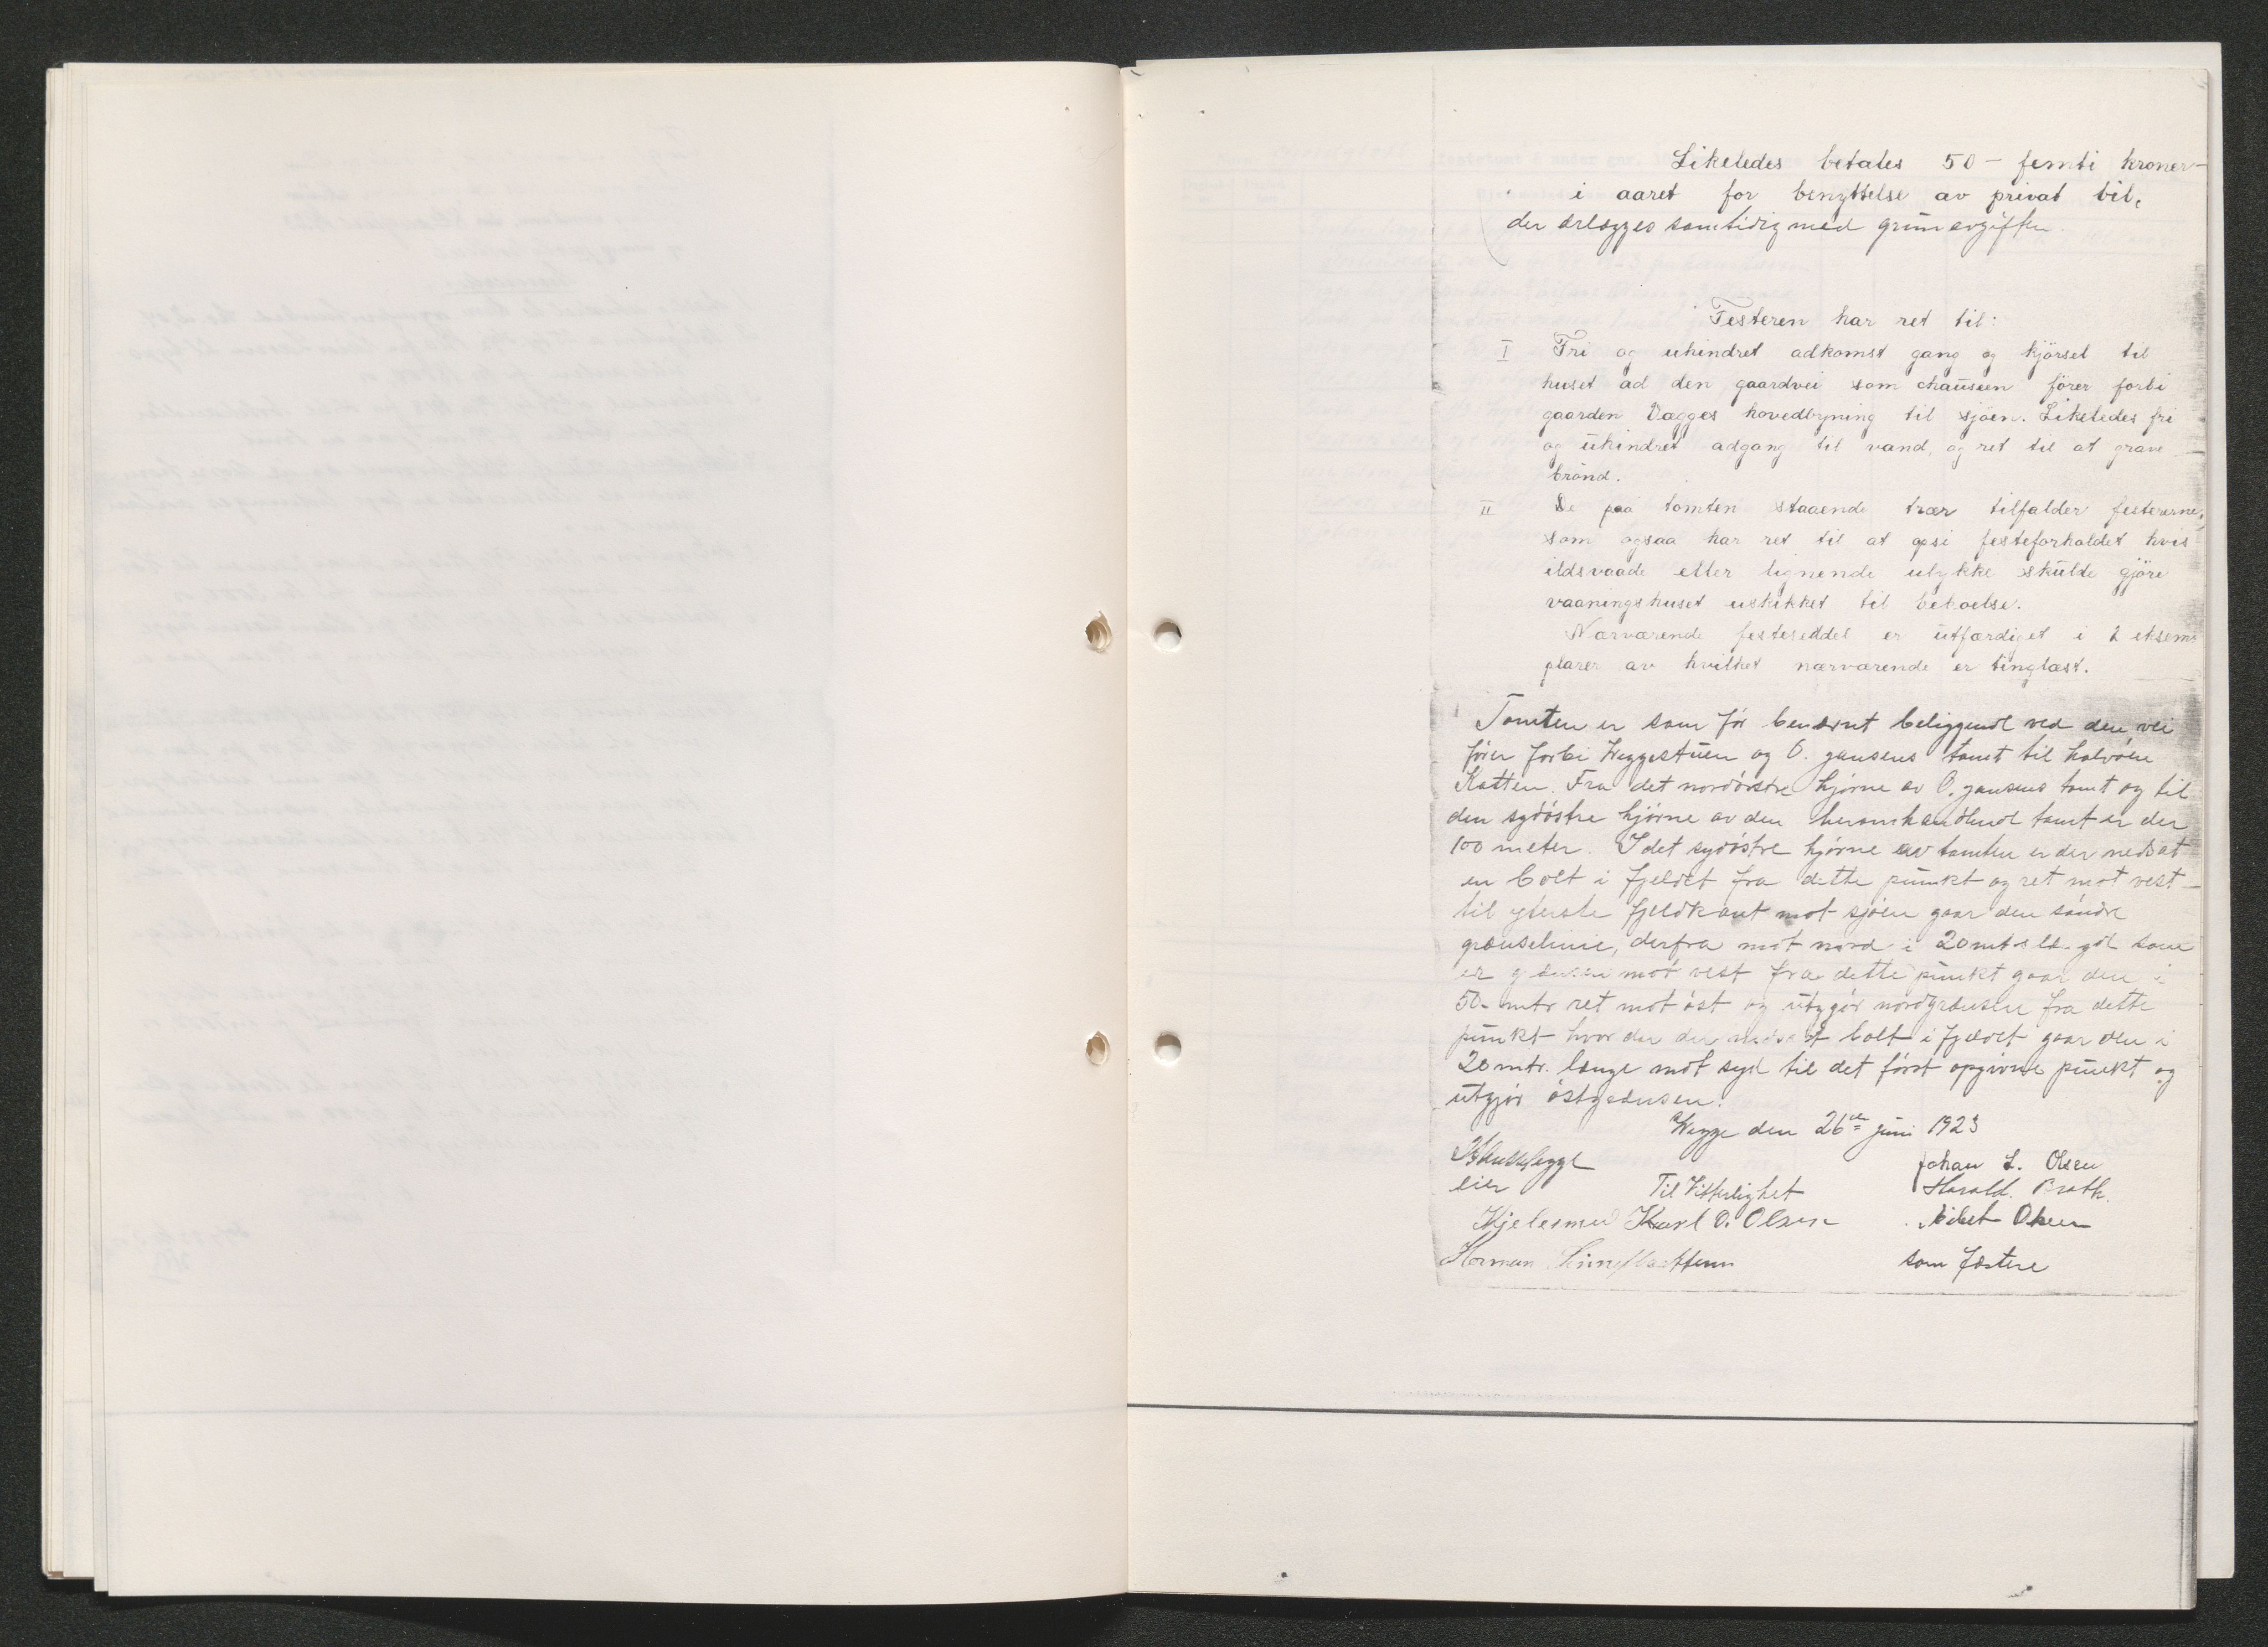 Likeledes betales 50 - femti kroner -
i aaret for benyttelse av privat bil,
der erlægges samtidig med grunnavgiften.
Festeren har ret til:
I Fri og uhindret adkomst gang og kjörsel til
huset ad den gaardvei som chauseen förer forbi
gaarden Vegges hovedbyning til sjöen. Likeledes fri
og uhindret adgang til vand, og ret til at grave
brönd.
II De paa tomten staaende trær tilfalder festererne,
som ogsaa har ret til at opsi festeforholdet hvis
ildsvaade eller lignende ulykke skulde gjöre
vaaningshuset uskikket til beboelse.
Nærværende festeseddel er utfærdiget i 2 eksem-
plarer av hvilket nærværende er tinglæst.
Tomten er som för benævnt beliggende ved den vei
förer forbi Weggestuen og O. Jansens tomt til halvöen
Katten. Fra det nordöstre hjörne av O. Jansens tomt og til
den sydöstre hjörne av den heromhandlende tomt er der
100 meter. I det sydöstre hjörne av tomten er der nedsat
en bolt i fjeldet fra dette punkt og ret mot vest -
til yterste fjeldkant mot sjöen gaar den söndre
grænselinie, derfra mot nord i 20 mtr som
er mot vest fra dette punkt gaar den i
50 - mtr ret mot öst og utgjör nordgrænsen fra dette
punkt hvor der er nedsat bolt i fjeldet gaar den i
20 mtr. længe mot syd til det först opgivne punkt og
utgjör östgrænsen.
Wegge den 26de juni 1923
Johan L. Olsen
eier Til Vitterlighet Harald
Karl O. Olsen Olsen
Herman som fæstere